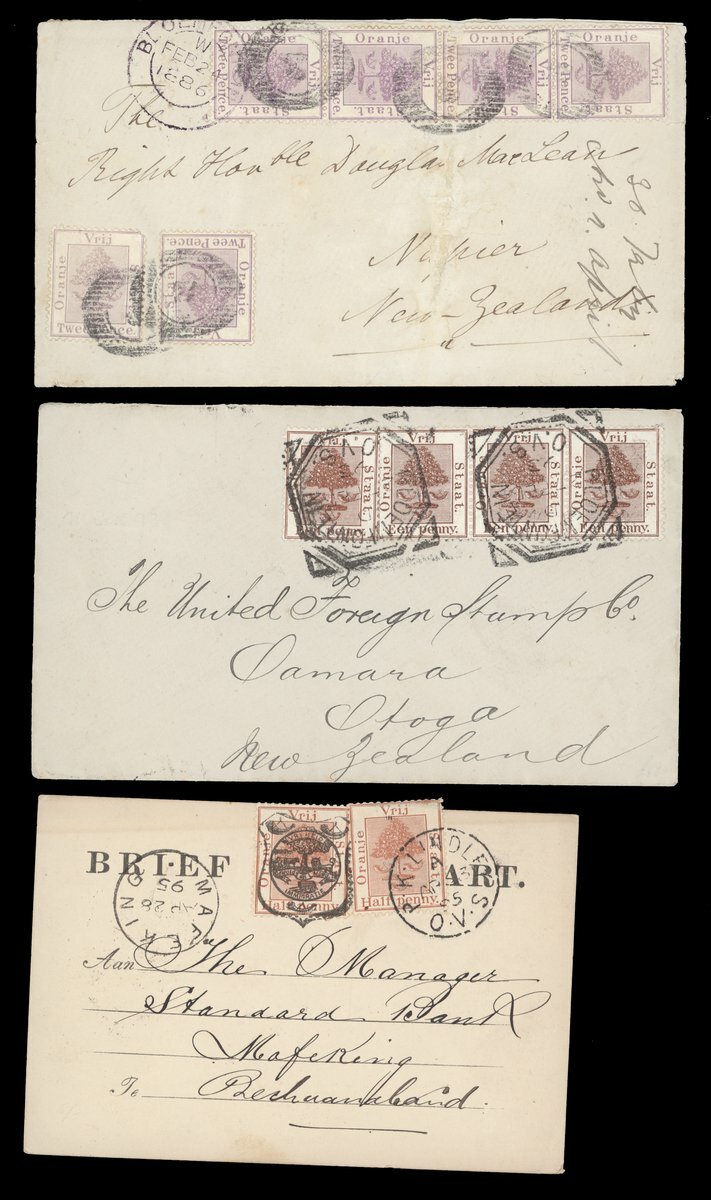 BLOEMF
W
FEB 2
1886
Oranje
Vrij
Staat.
Twee Pence.
Oranje
Vrij
Staat.
Twee Pence.
Oranje
Vrij
Staat.
Twee Pence.
Oranje
Vrij
Staat.
Twee Pence.
The
Right Honble Douglas MacLean
Napier
New-Zealand
april
Vrij
Oranje
Twee Pence.
Twee Pence.
Oranje
Staat
Vrij
Oranje
Vrij
Staat.
Een penny.
Vrij
Oranje
Staat.
Een penny.
Vrij
Oranje
Staat.
Een penny.
Vrij
Oranje
Staat.
Een penny.
BLOEMFONTEIN
O.V.S
BLOEMFONTEIN
O.V.S
The United Foreign Stamp Co.
Oamaru
Otoga
New Zealand
BRIEF
ART.
Vrij
Oranje
Staat
Half penny.
Vrij
Oranje
Staat
Half penny.
LINDLEY
A
95
O.V.S
MAFEKING
AP 28
95
Aan The Manager
Standard Bank
Mafeking
To Bechuanaland.